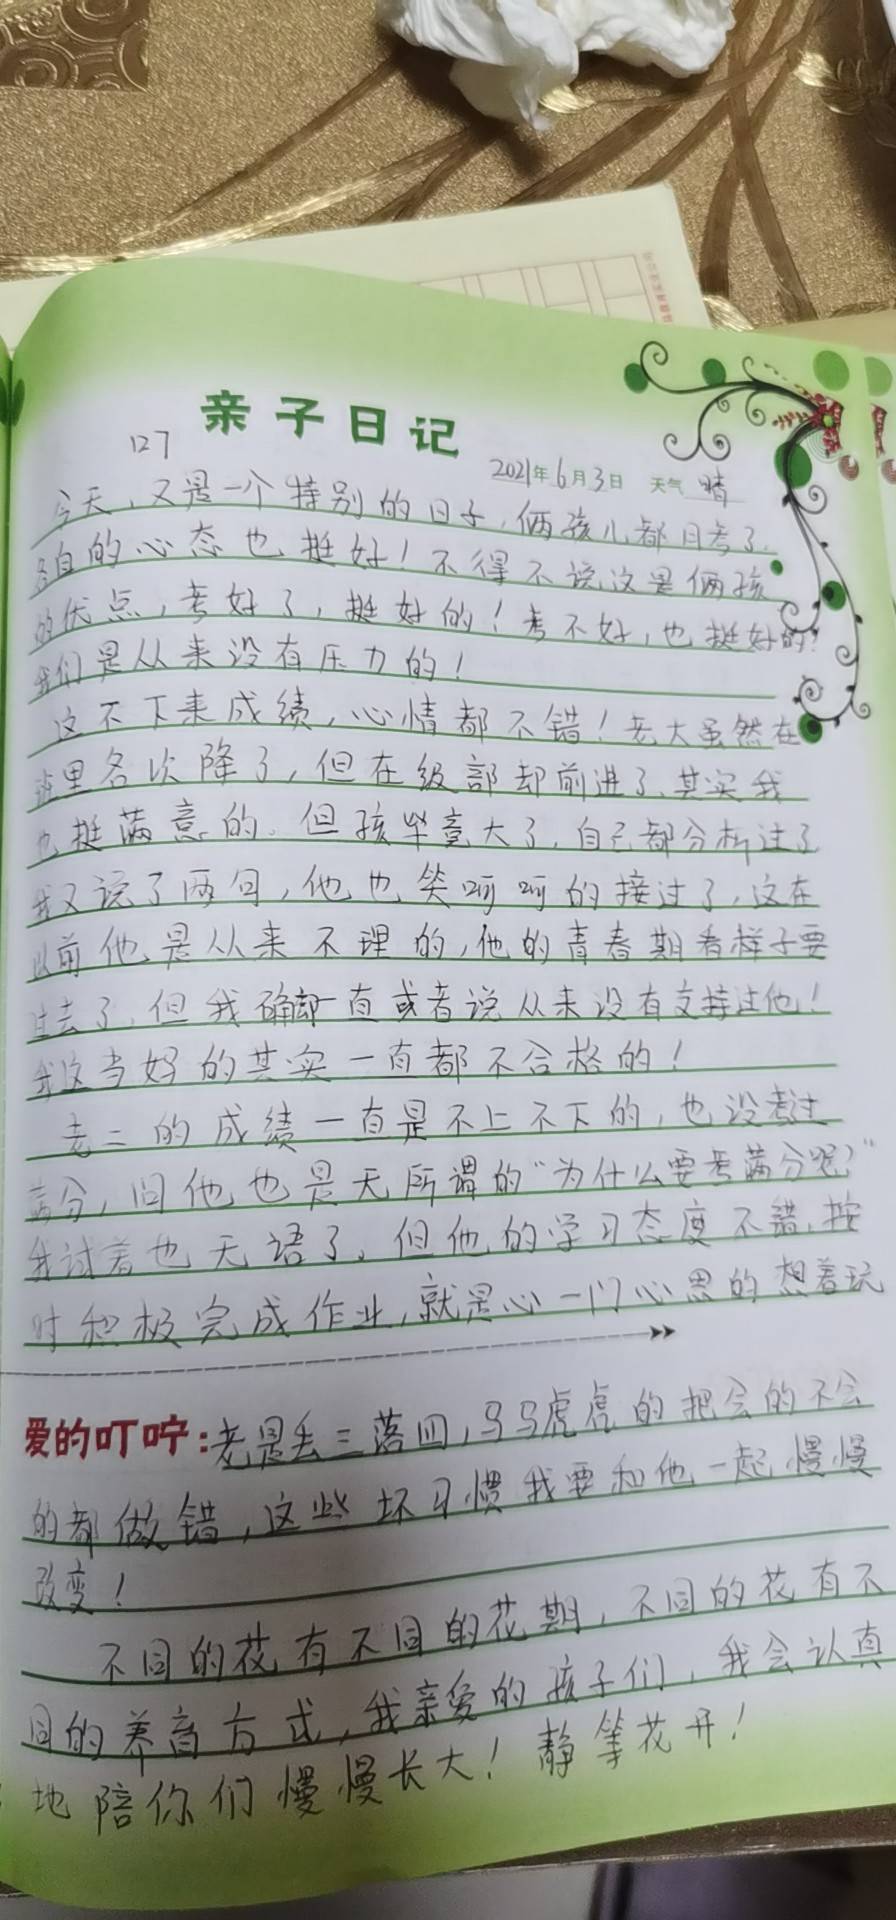 亲子日记
127
2021年6月3日 天气 晴
今天,又是一个特别的日子,俩孩儿都月考了,
各自的心态也挺好!不得不说这是俩孩
的优点,考好了,挺好的!考不好,也挺好的?
我们是从来没有压力的!
这不下来成绩,心情都不错!老大虽然在
班里名次降了,但在级部却前进了,其实我
也挺满意的。但孩毕竟大了,自己都分析过了
我又说了两句,他也笑呵呵的接过了,这在
以前他是从来不理的,他的青春期看样子要
过去了,但我确却一直或者说从来没有支持过他!
我这当妈的其实一直都不合格的!
老二的成绩一直是不上不下的,也没考过
满分,问他也是无所谓的“为什么要考满分呢?”
我试着也无语了,但他的学习态度不错,按
时积极完成作业,就是心一门心思的想着玩
爱的叮咛:老是丢三落四,马马虎虎的把会的不会
的都做错,这些坏习惯我要和他一起慢慢
改变!
不同的花有不同的花期,不同的花有不
同的养育方式,我亲爱的孩子们,我会认真
地陪你们慢慢长大!静等花开!